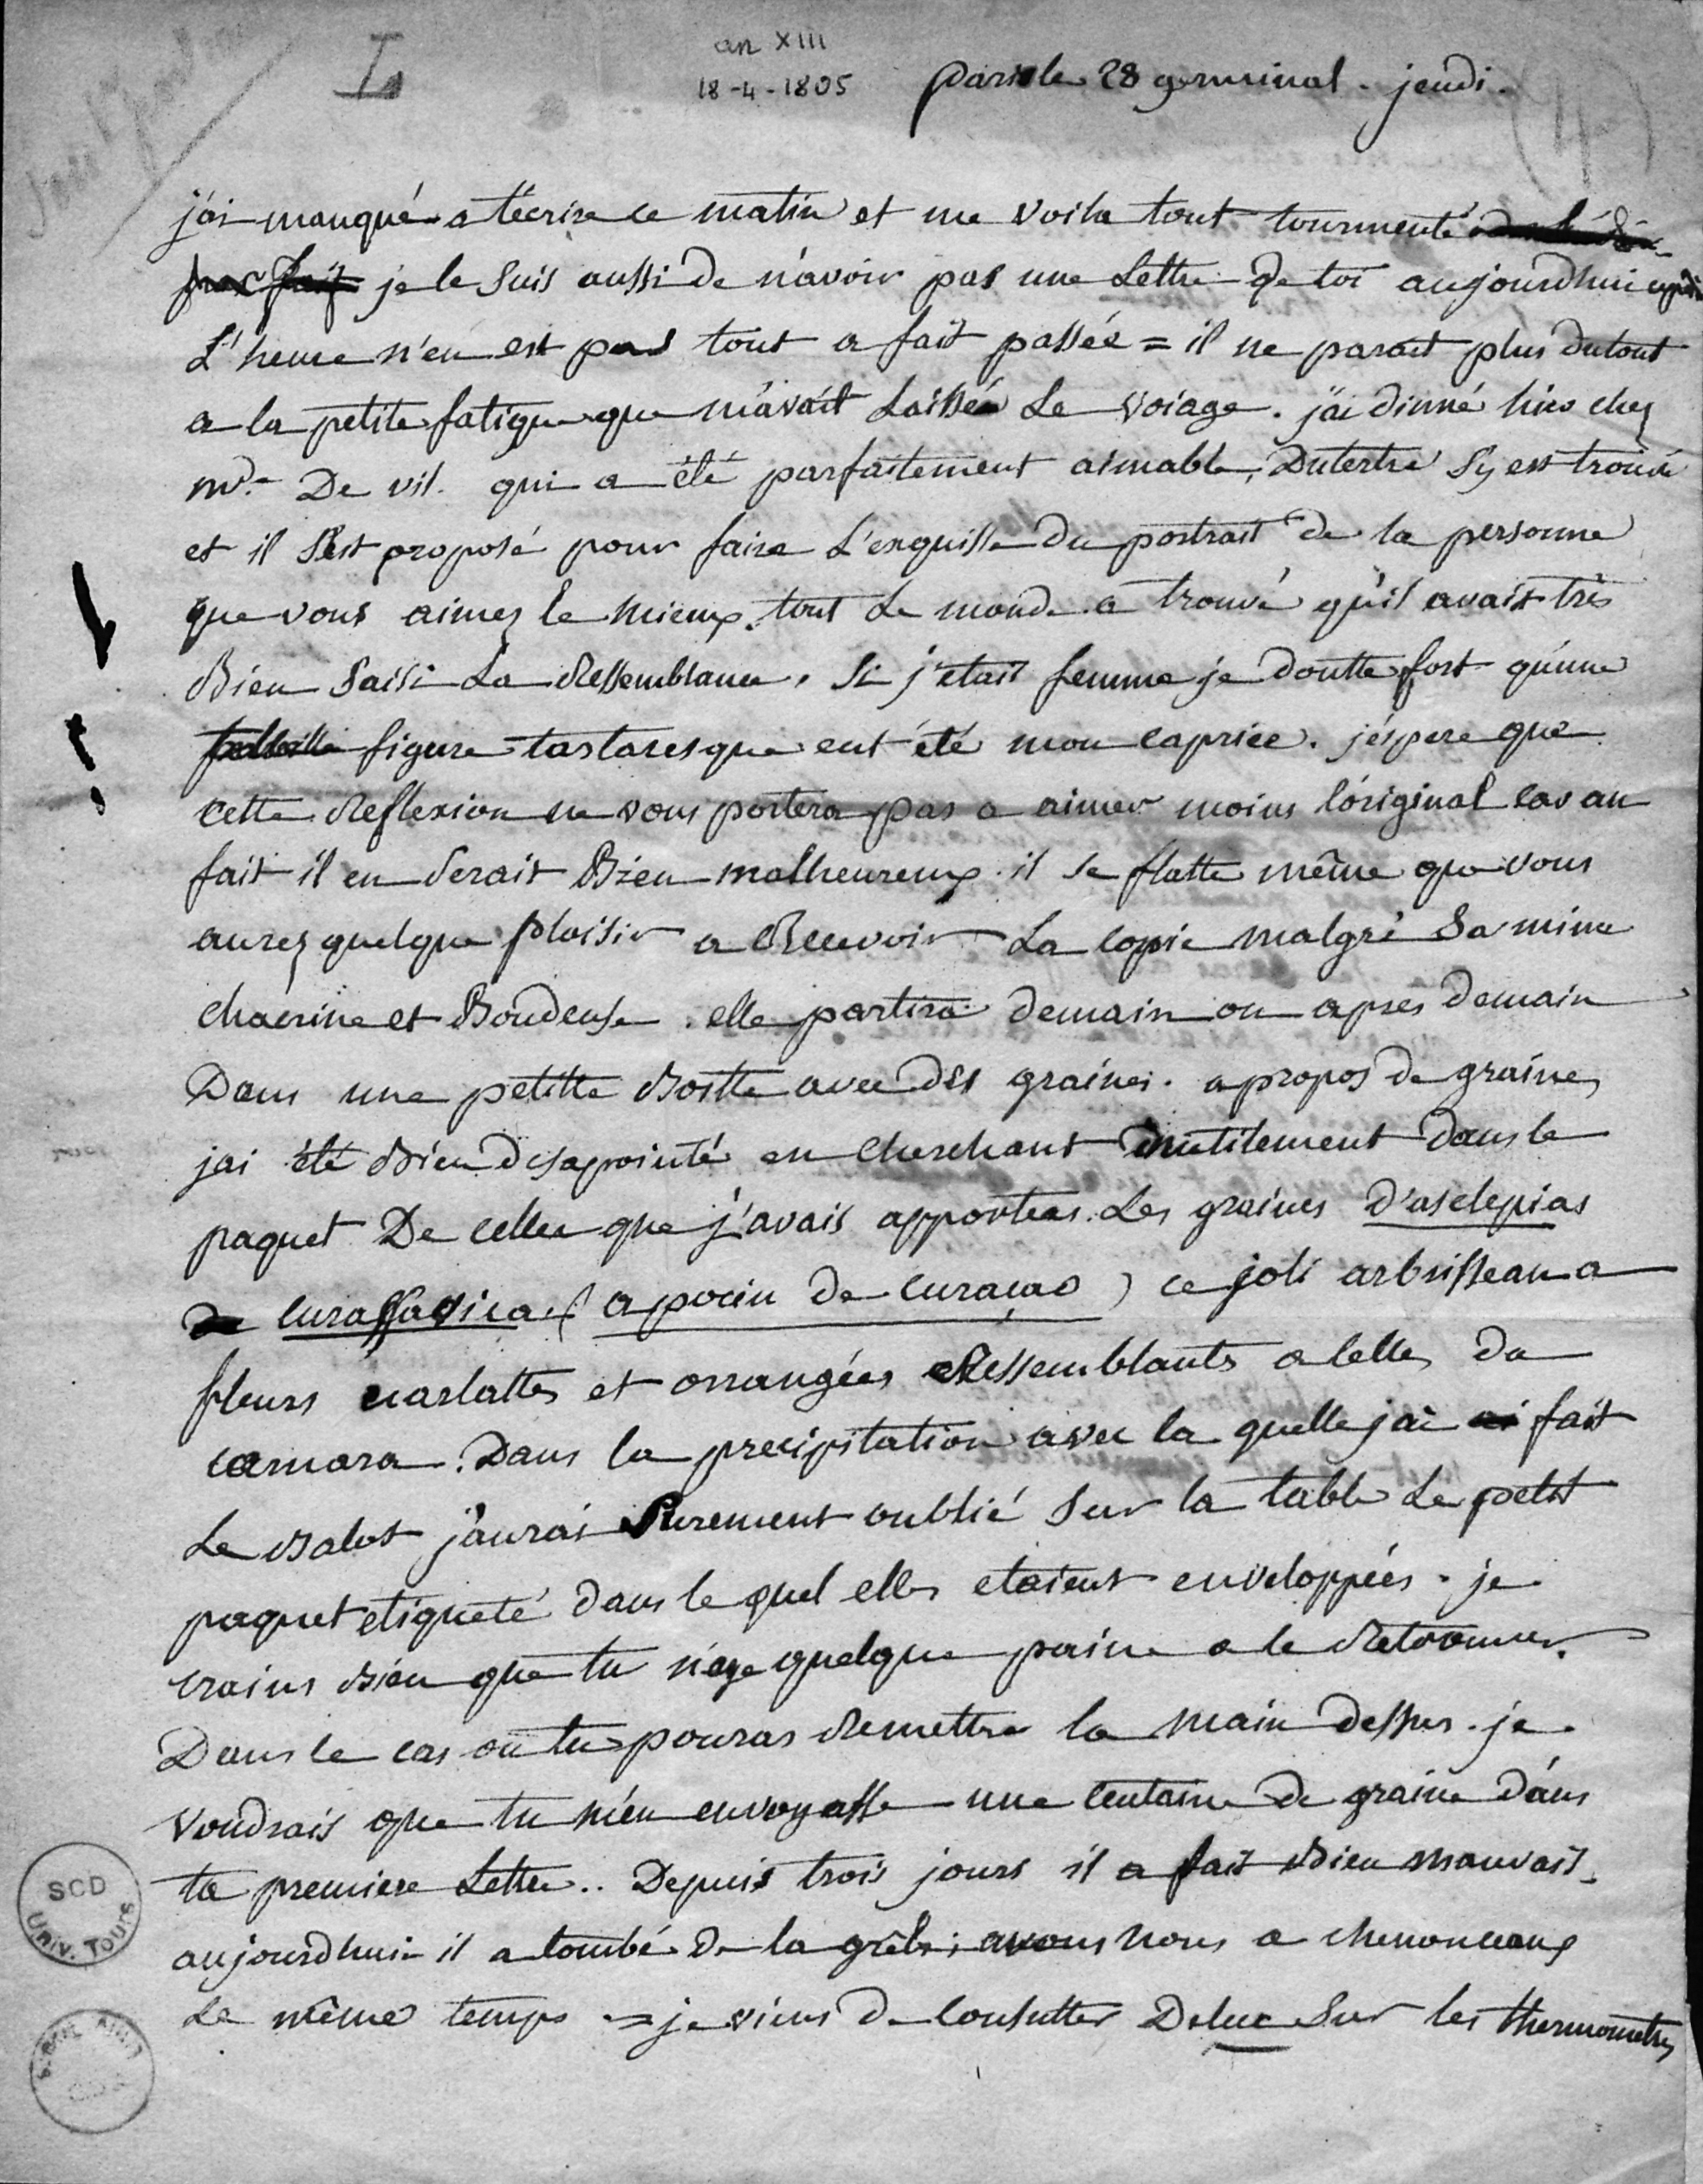 L
an XIII
18-4-1805
paris le 28 germinal. jeudi.
j'ai manqué a t'ecrire ce matin et me voila tout tourmenté
je le suis aussi de n'avoir pas une Lettre de toi aujourdhui
L'heure n'en est pas tout a fait passée = il ne parait plus dutout
a la petite fatigue que m'avait Laissée Le voiage. j'ai dinné hier chez
md. De vil. qui a été parfaitement aimable, Dutertre s'y est trouvé
et il s'est proposé pour faire L'esquisse du portrait de la personne
que vous aimez le mieux. tout Le monde a trouvé qu'il avait très
Bien saisi La Ressemblance. si j'etais femme je doutte fort qu'une
figure tartaresque eut été mon caprice. j'espere que
cette Reflexion ne vous portera pas a aimer moins l'original car au
fait il en serait Bien malheureux. il se flatte même que vous
aurez quelque plaisir a Recevoir La copie malgré sa mine
chagrine et Boudeuse. elle partira demain ou apres demain
Dans une petitte Boitte avec des graines. a propos de graines
jai été Bien desapointé en cherchant inutilement dans le
paquet De celles que j'avais apportees. Les graines d'asclepias
curassavica (apocin de curaçao) ce joli arbrisseau a
fleurs ecarlattes et orrangées Ressemblants a celles du
camara. Dans la precipitation avec la quelle jai fait
Le Balot j'aurai surement oublié sur la table Le petit
paquet etiqueté dans le quel elles etaient enveloppées. je
crains Bien que tu n'aye quelque paine a le Retrouver.
Dans le cas ou tu pouras Remettre la main dessus. je
voudrais que tu m'en envoyasse une centaine de graine dans
ta premiere Lettre.. Depuis trois jours il a fait Bien mauvais.
aujourdhui il a tombé de la grêle; avons nous a chenonceaux
Le même temps = je viens de consulter Deluc sur les thermometres
SCD
Univ. Tours